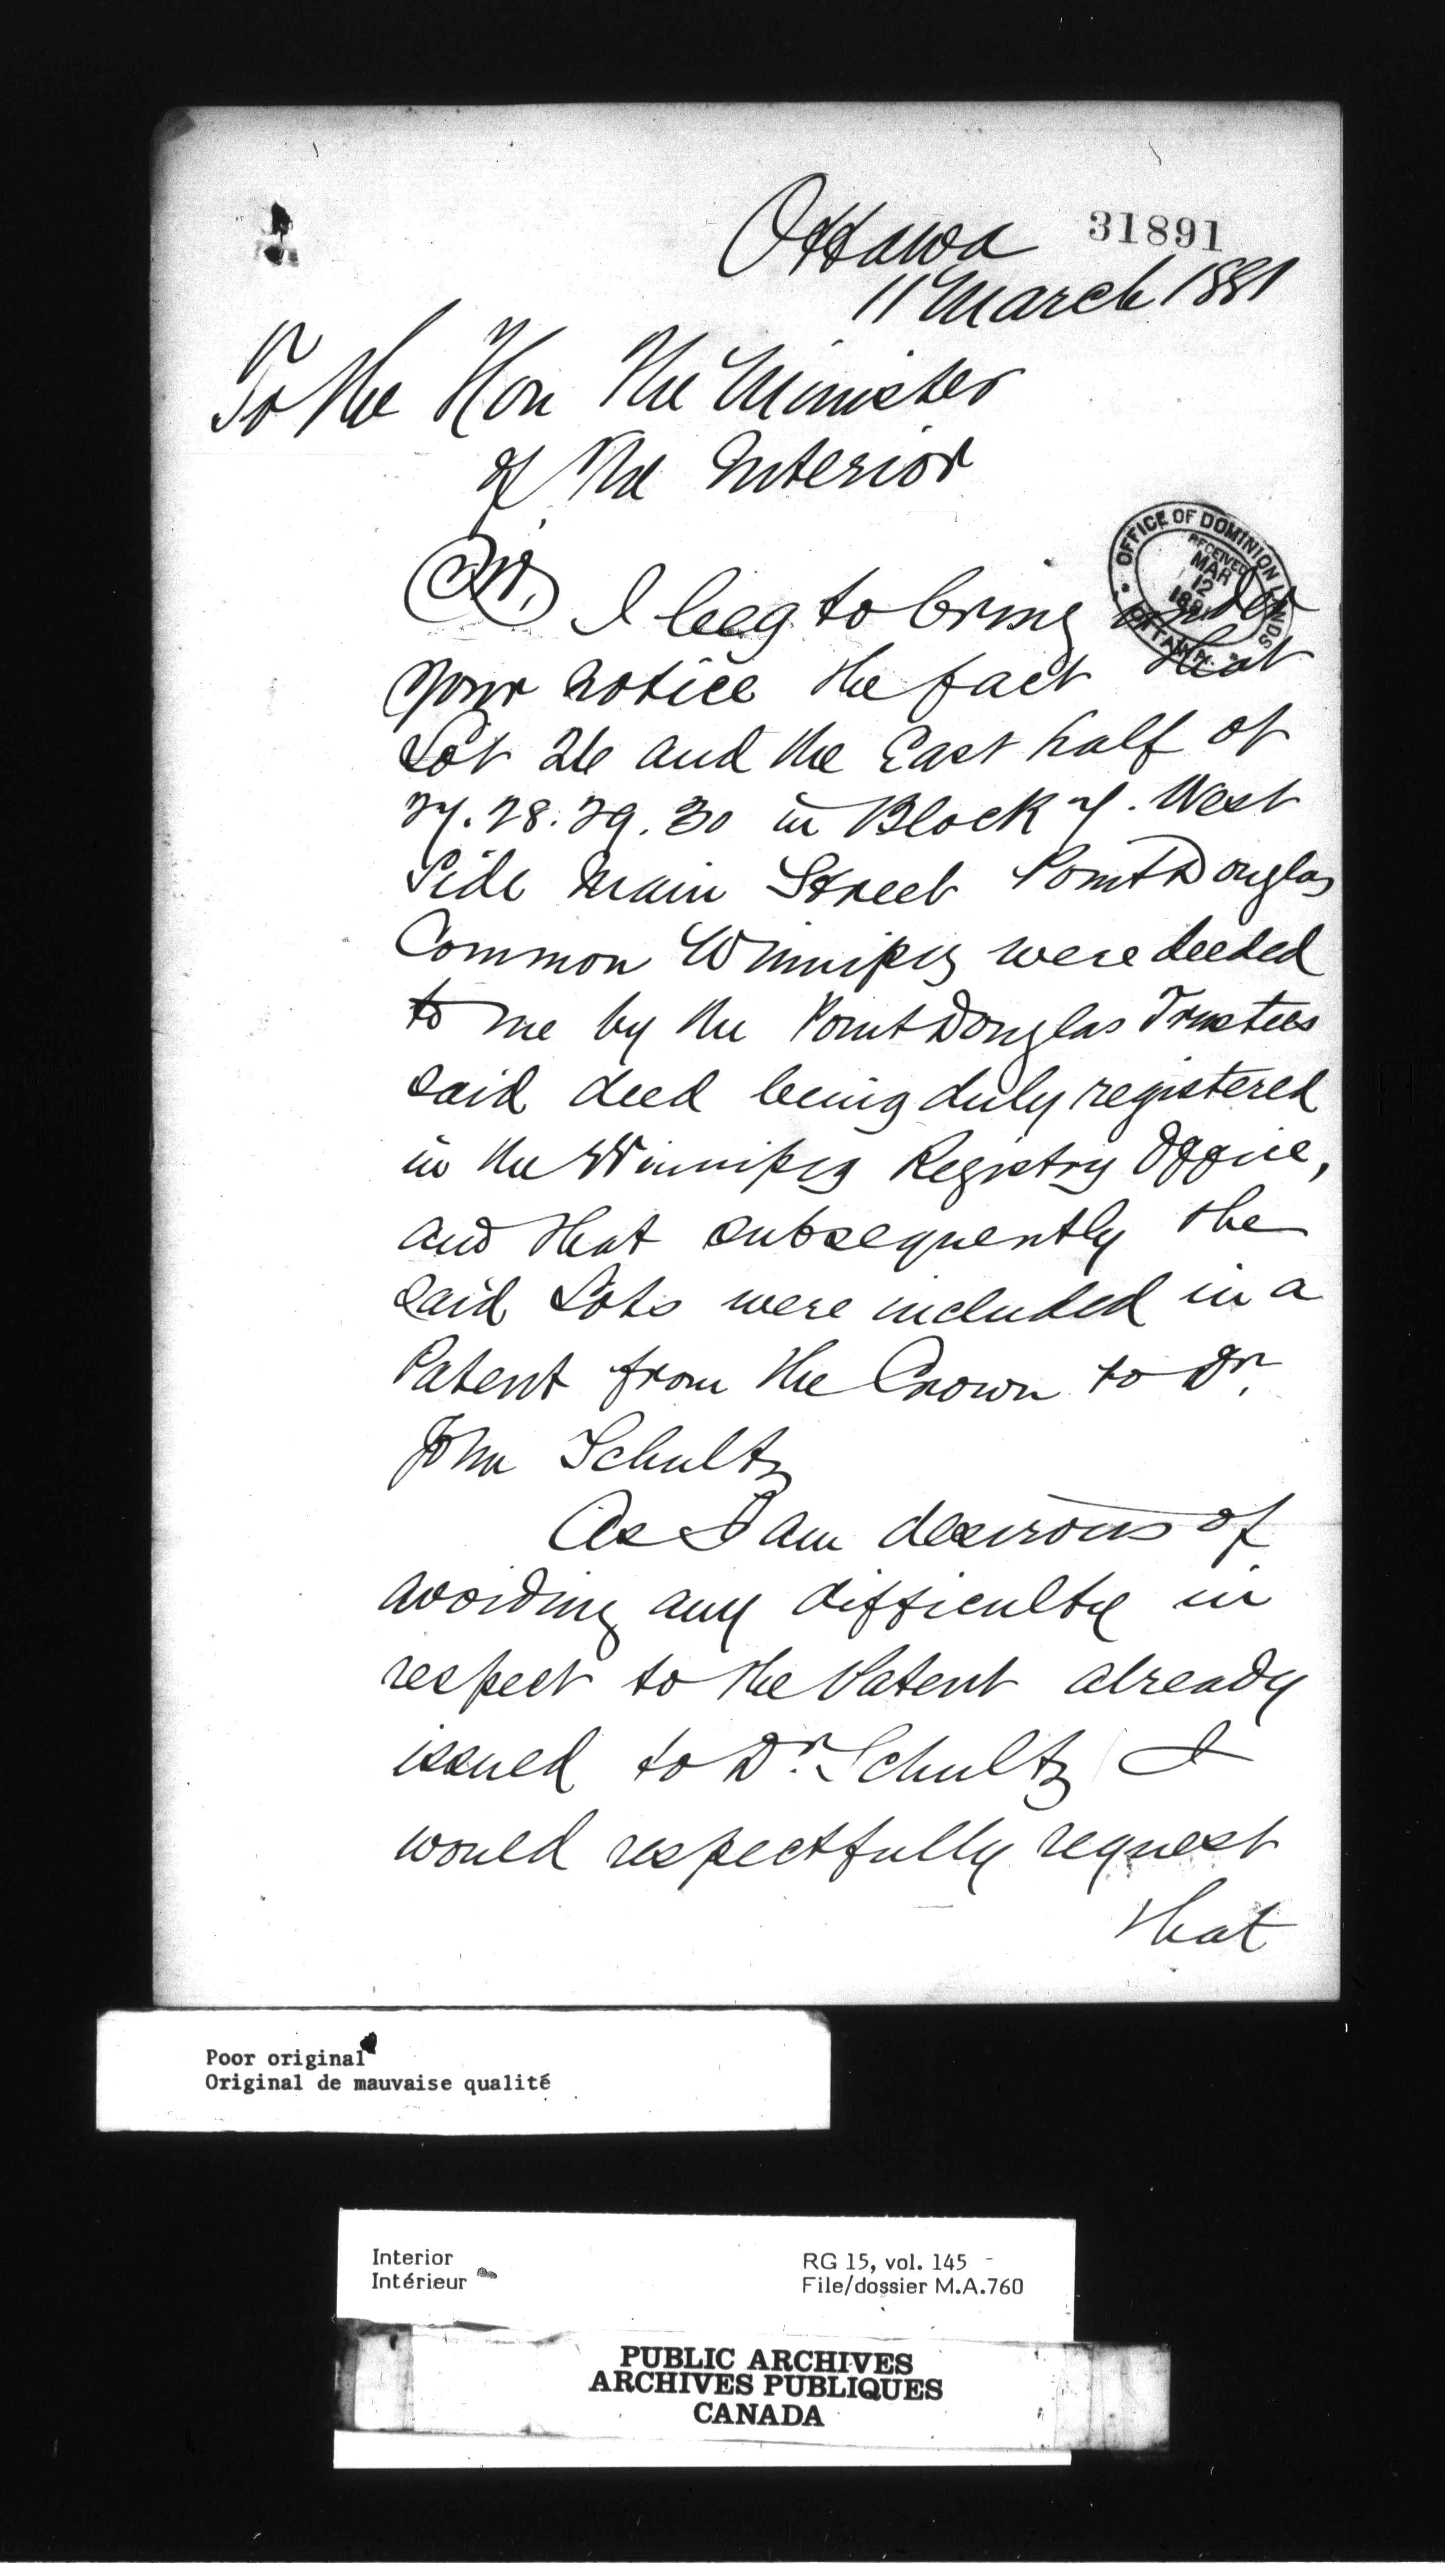 Ottawa 31891
11 March 1881
To the Hon the Minister
of the Interior
Sir,
I beg to bring under
your notice the fact that
Lot 26 and the East half of
27. 28. 29. 30 in Block 7. West
Side Main Street Point Douglas
Common Winnipeg were deeded
to me by the Point Douglas Trustees
said deed being duly registered
in the Winnipeg Registry Office,
and that subsequently the
said Lots were included in a
Patent from the Crown to Dr.
John Schultz
As I am desirous of
avoiding any difficulty in
respect to the Patent already
issued to Dr. Schultz I
would respectfully request
that
OFFICE OF DOMINION LANDS
RECEIVED
MAR
12
1881
OTTAWA.
Poor original
Original de mauvaise qualité
Interior
Intérieur
RG 15, vol. 145
File/dossier M.A.760
PUBLIC ARCHIVES
ARCHIVES PUBLIQUES
CANADA